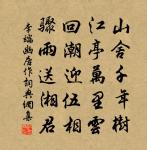 山舍千年樹
江亭萬里雲
回潮迎伍相
驟雨送湘君
李端幽居作詞典網集